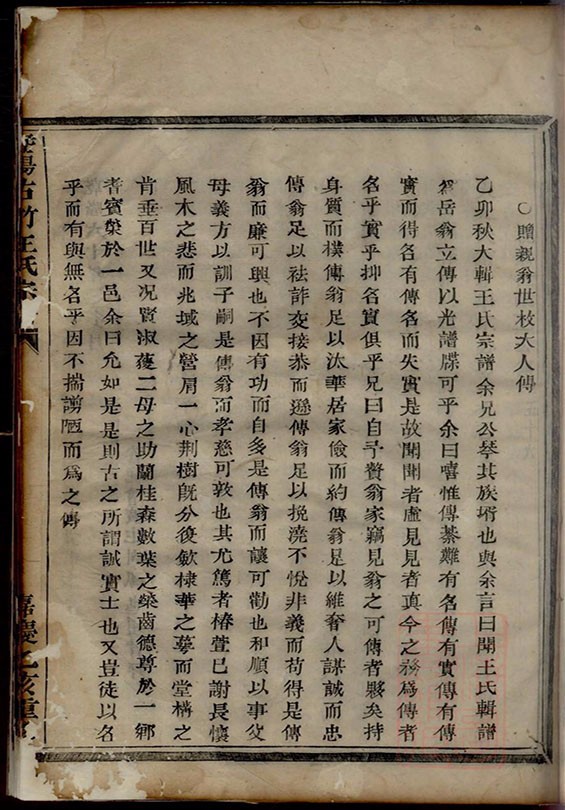 ○贈親翁世枝大人傳
乙卯秋大輯王氏宗譜余兄公琴其族壻也與余言曰聞王氏輯譜
爲岳翁立傳以光譜牒可乎余曰嘻惟傳綦難有名傳有實傳有傳
實而得名有傳名而失實是故聞聞者虛見見者真今之務爲傳者
名乎實乎抑名實俱乎兄曰自予贅翁家竊見翁之可傳者夥矣持
身質而樸傳翁足以汰華居家儉而約傳翁足以維奢人謀誠而忠
傳翁足以祛詐交接恭而遜傳翁足以挽澆不悅非義而苟得是傳
翁而廉可興也不因有功而自多是傳翁而讓可勸也和順以事父
母義方以訓子嗣是傳翁而孝慈可敦也其尤篤者椿萱已謝長懷
風木之悲而兆域之營肩一心荆樹旣分後歛棣華之摹而堂構之
肯垂百世又况賢淑蘐二母之助蘭桂森數葉之榮齒德尊於一鄉
者賓榮於一邑余曰允如是是則古之所謂誠實士也又豈徒以名
乎而有與無名乎因不揣謭陋而爲之傳
陽古竹王氏宗
嘉慶乙亥重